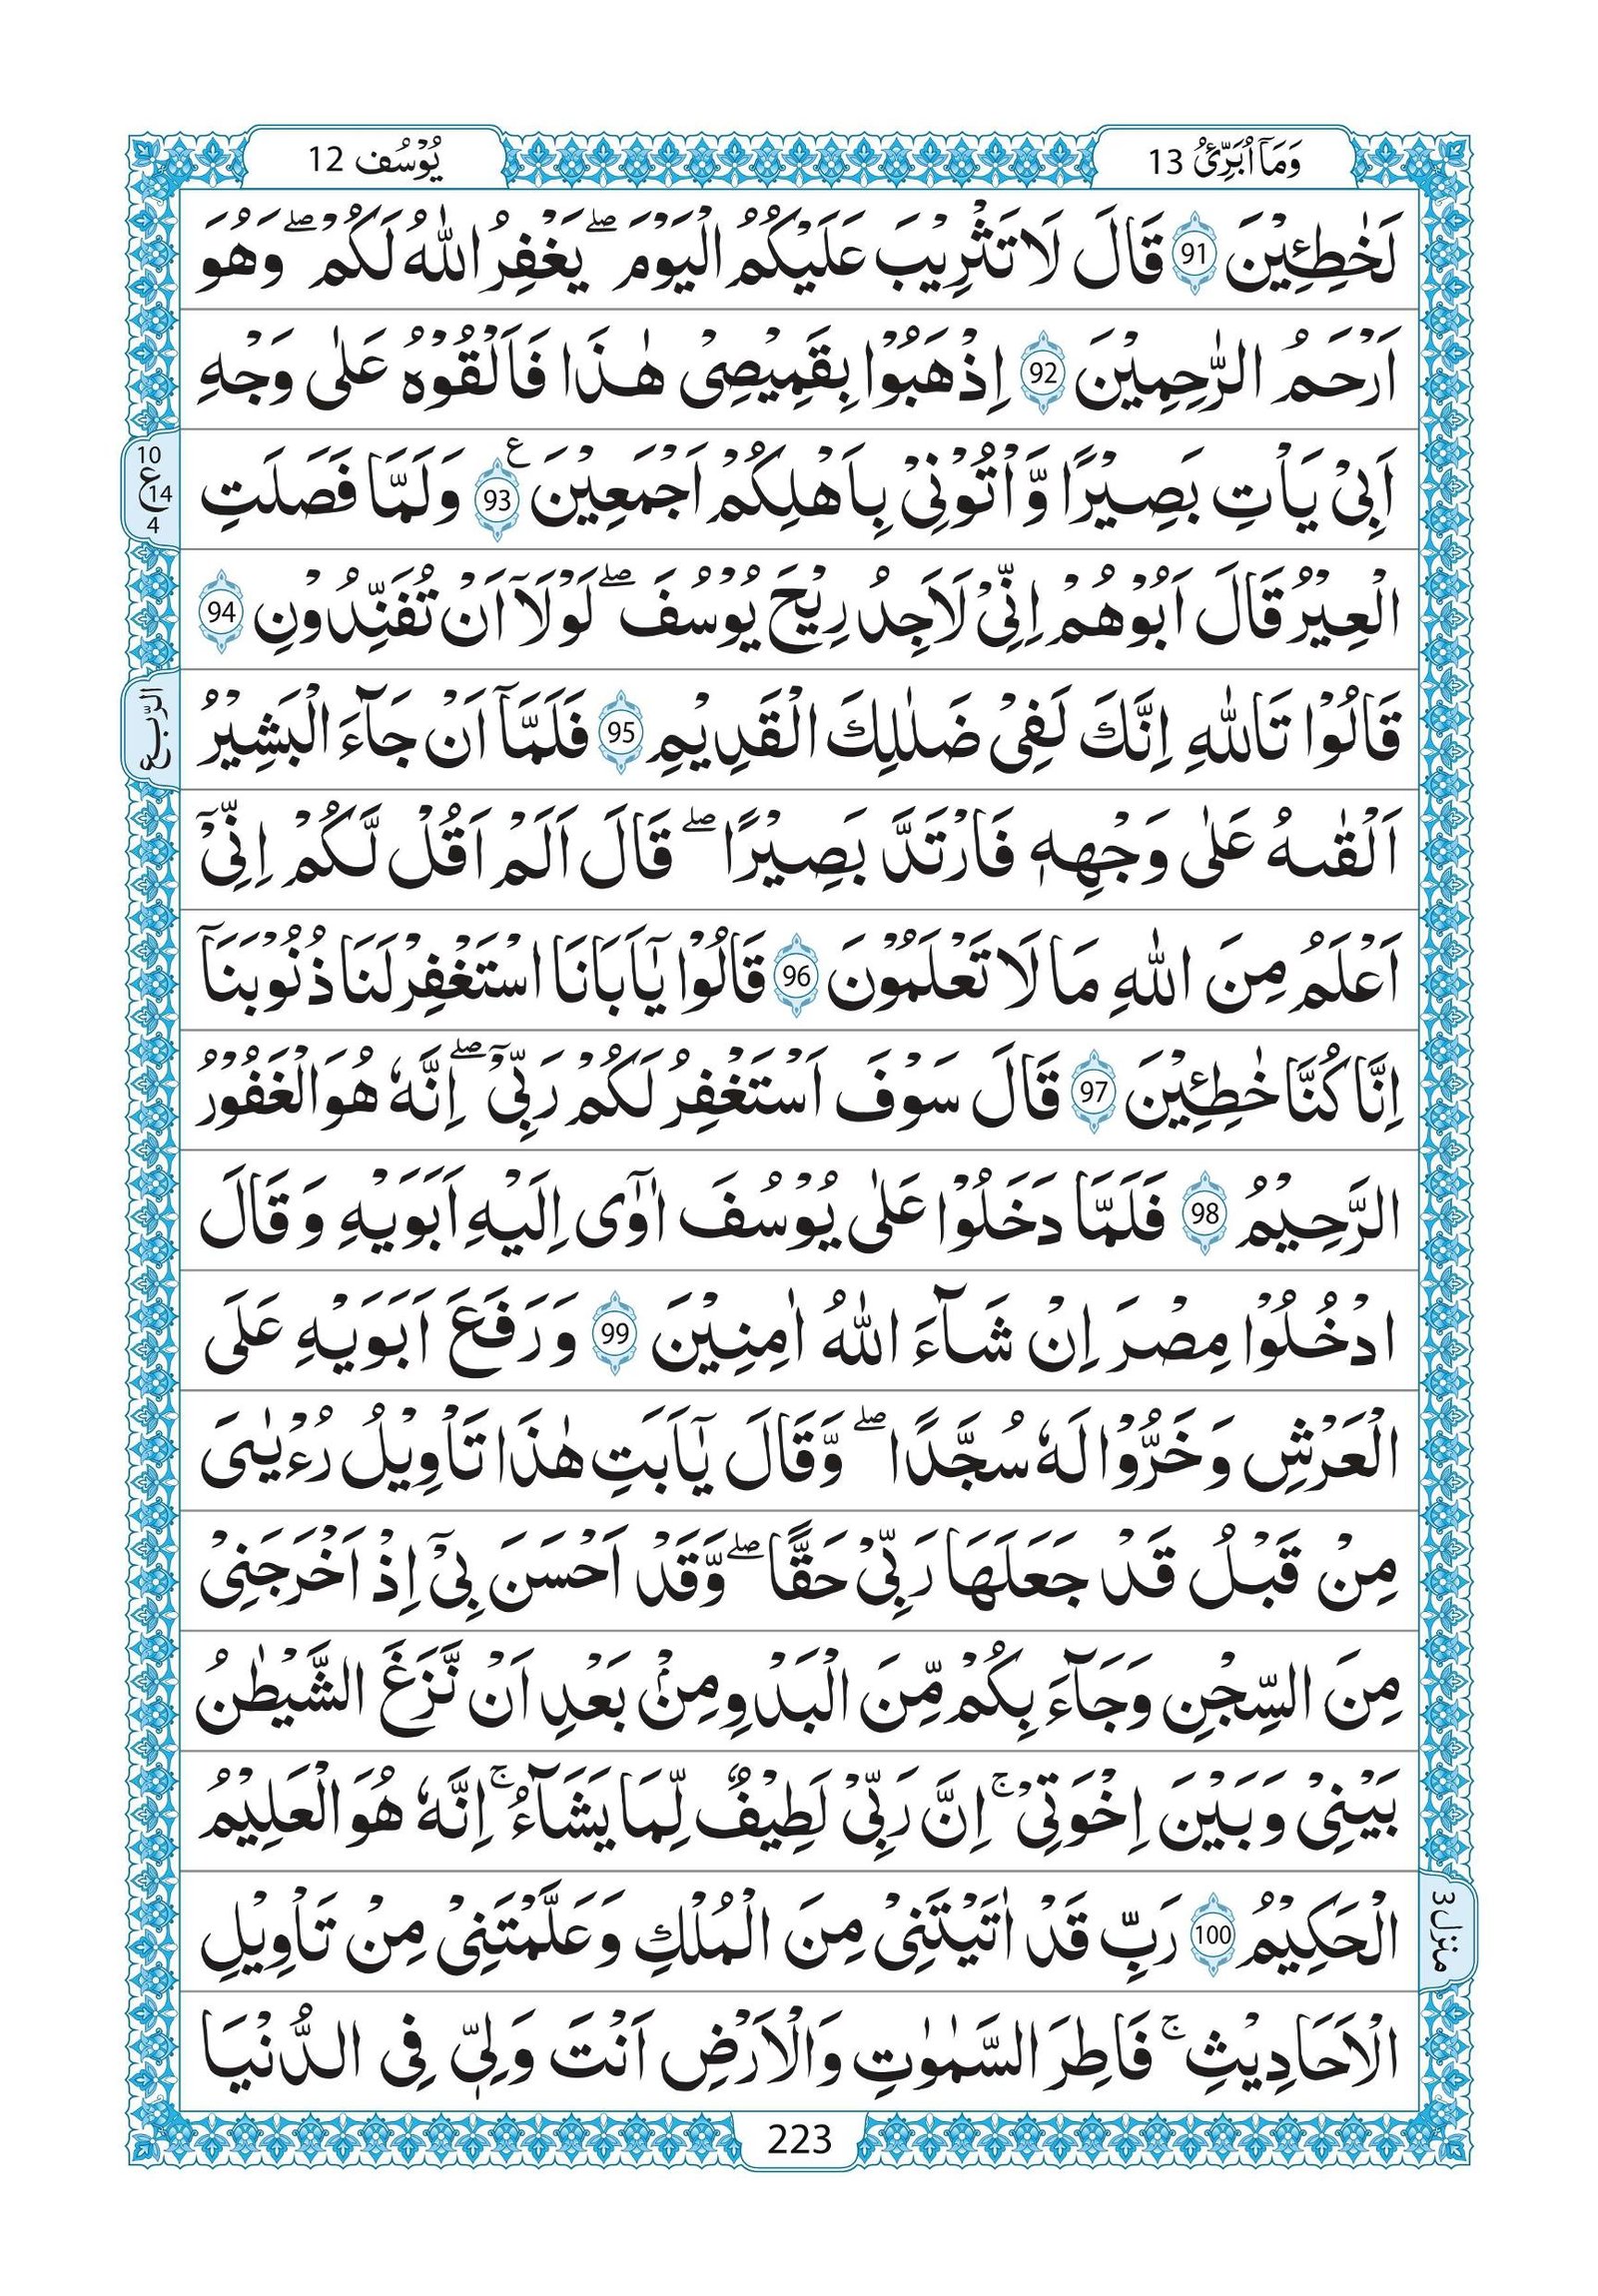 وَمَاۤ اُبَرِّئُ 13
يُوْسُف 12
لَخٰطِـِٕيْنَ 91 قَالَ لَا تَثْرِيْبَ عَلَيْكُمُ الْيَوْمَ ۖ يَغْفِرُ اللّٰهُ لَكُمْ ۖ وَهُوَ
اَرْحَمُ الرّٰحِمِيْنَ 92 اِذْهَبُوْا بِقَمِيْصِىْ هٰذَا فَاَلْقُوْهُ عَلٰى وَجْهِ
اَبِىْ يَاْتِ بَصِيْرًا وَّاْتُوْنِىْ بِاَهْلِكُمْ اَجْمَعِيْنَ ع 93 وَلَمَّا فَصَلَتِ
10
ع 14
4
الْعِيْرُ قَالَ اَبُوْهُمْ اِنِّىْ لَاَجِدُ رِيْحَ يُوْسُفَ ۖ لَوْلَاۤ اَنْ تُفَنِّدُوْنِ 94
قَالُوْا تَاللّٰهِ اِنَّكَ لَفِىْ ضَلٰلِكَ الْقَدِيْمِ 95 فَلَمَّاۤ اَنْ جَآءَ الْبَشِيْرُ
الرّبع
اَلْقٰىهُ عَلٰى وَجْهِهٖ فَارْتَدَّ بَصِيْرًا ۖ قَالَ اَلَمْ اَقُلْ لَّكُمْ اِنِّىْۤ
اَعْلَمُ مِنَ اللّٰهِ مَا لَا تَعْلَمُوْنَ 96 قَالُوْا يٰۤاَبَانَا اسْتَغْفِرْ لَنَا ذُنُوْبَنَاۤ
اِنَّا كُنَّا خٰطِـِٕيْنَ 97 قَالَ سَوْفَ اَسْتَغْفِرُ لَكُمْ رَبِّىْ ۖ اِنَّهٗ هُوَ الْغَفُوْرُ
الرَّحِيْمُ 98 فَلَمَّا دَخَلُوْا عَلٰى يُوْسُفَ اٰوٰۤى اِلَيْهِ اَبَوَيْهِ وَقَالَ
ادْخُلُوْا مِصْرَ اِنْ شَآءَ اللّٰهُ اٰمِنِيْنَ 99 وَرَفَعَ اَبَوَيْهِ عَلَى
الْعَرْشِ وَخَرُّوْا لَهٗ سُجَّدًا ۖ وَّقَالَ يٰۤاَبَتِ هٰذَا تَاْوِيْلُ رُءْيٰىىَ
مِنْ قَبْلُ قَدْ جَعَلَهَا رَبِّىْ حَقًّا ۖ وَّقَدْ اَحْسَنَ بِىْۤ اِذْ اَخْرَجَنِىْ
مِنَ السِّجْنِ وَجَآءَ بِكُمْ مِّنَ الْبَدْوِ مِنْۢ بَعْدِ اَنْ نَّزَغَ الشَّيْطٰنُ
بَيْنِىْ وَبَيْنَ اِخْوَتِىْ ۚ اِنَّ رَبِّىْ لَطِيْفٌ لِّمَا يَشَآءُ ۚ اِنَّهٗ هُوَ الْعَلِيْمُ
الْحَكِيْمُ 100 رَبِّ قَدْ اٰتَيْتَنِىْ مِنَ الْمُلْكِ وَعَلَّمْتَنِىْ مِنْ تَاْوِيْلِ
منزل 3
الْاَحَادِيْثِ ۚ فَاطِرَ السَّمٰوٰتِ وَالْاَرْضِ اَنْتَ وَلِىّٖ فِى الدُّنْيَا
223